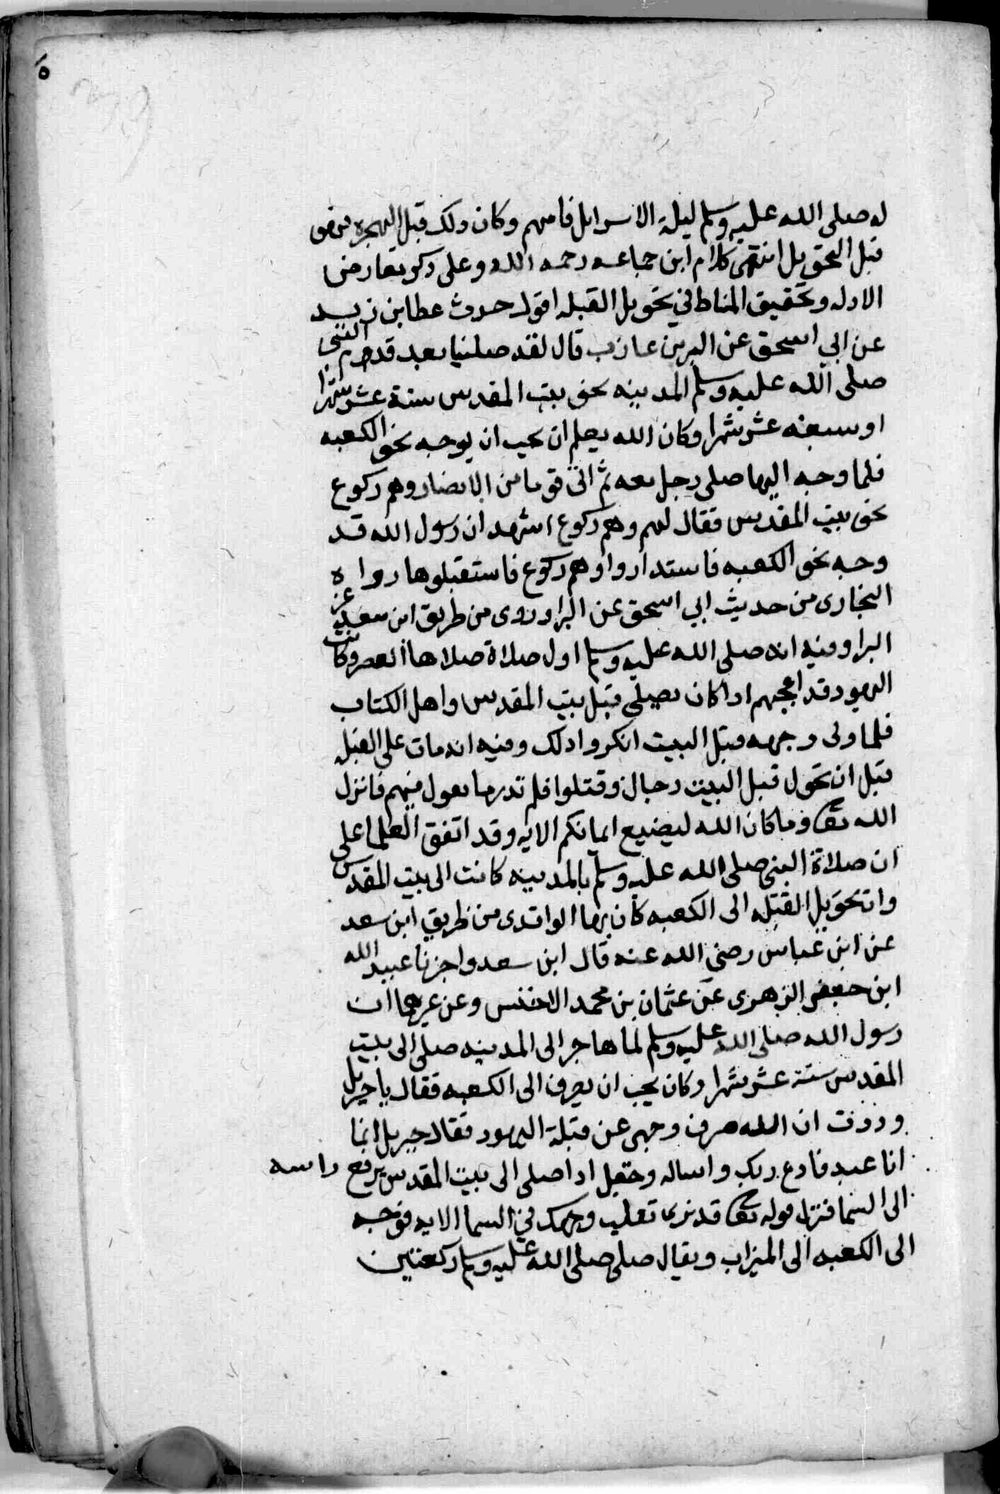 ٥
له صلى الله عليه وسلم ليلة الاسرا بل فامهم وكان ذلك قبل الهجره
قبل التحويل انتهى كلام ابن جماعه رحمه الله وعلى ذكر تعارض
الادله وتحقيق المناط في تحويل القبله اقول حدث عطا بن زيد
عن ابي اسحق عن البر بن عازب قال لقد صلينا بعد قدوم النبي
صلى الله عليه وسلم المدينه نحو بيت المقدس ستة عشر شهرا
او سبعه عشر شهرا وكان الله يعلم ان يحب ان يوجه نحو الكعبه
فلما وجه اليها صلى رجل معه ثم اتى قوما من الانصار وهم ركوع
نحو بيت المقدس فقال لهم وهم ركوع اشهد ان رسول الله قد
وجه نحو الكعبه فاستداروا وهم ركوع فاستقبلوها رواه
البخارى من حديث ابي اسحق عن البرا وروى من طريق ابن سعد عن
البرا وفيه انه صلى الله عليه وسلم اول صلاة صلاها العصر وكانت
اليهود قد اعجبهم اذا كان يصلى قبل بيت المقدس واهل الكتاب
فلما ولى وجهه قبل البيت انكروا ذلك وفيه انه مات على القبله
قبل ان تحول قبل البيت رجال وقتلوا فلم ندر ما نقول فيهم فانزل
الله تعا وما كان الله ليضيع ايمانكم الايه وقد اتفق العلما على
ان صلاة النبي صلى الله عليه وسلم بالمدينه كانت الى بيت المقدس
وان تحويل القبله الى الكعبه كان بها الواقدى من طريق ابن سعد
عن ابن عباس رضي الله عنه قال ابن سعد واخبرنا عبيد الله
ابن جعفر الزهرى عن عثمان بن محمد الاخنس وعن غيرهما ان
رسول الله صلى الله عليه وسلم لما هاجر الى المدينه صلى الى بيت
المقدس ستة عشر شهرا وكان يحب ان يصرف الى الكعبه فقال يا جبريل
وددت ان الله صرف وجهى عن قبلة اليهود فقال جبريل انما
انا عبد فادع ربك واساله وجعل اذا صلى الى بيت المقدس يرفع راسه
الى السما فنزل قوله تعا قد نرى تقلب وجهك في السما الايه فوجه
الى الكعبه الى الميزاب ويقال صلى صلى الله عليه وسلم ركعتين